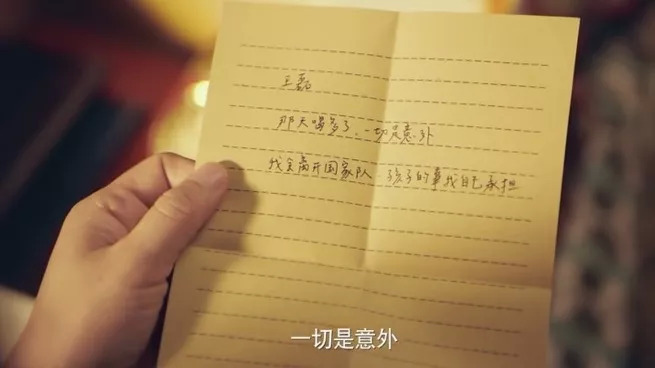 王磊
那天喝多了、一切是意外
我会离开国家队 孩子的事我自己承担
一切是意外